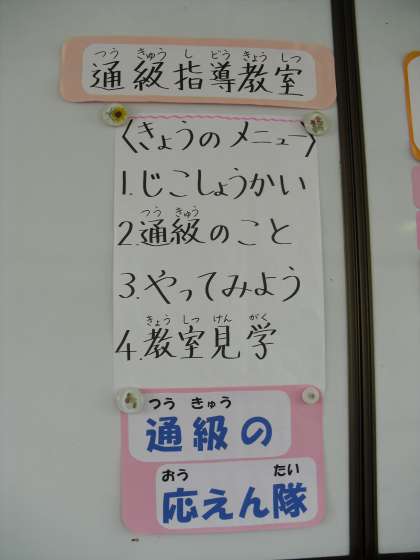 通級指導教室
つう きゅう し どう きょう しつ
〈きょうのメニュー〉
1.じこしょうかい
2.通級のこと
つう きゅう
3.やってみよう
4.教室見学
きょう しつ けん がく
通級の
つう きゅう
応えん隊
おう たい